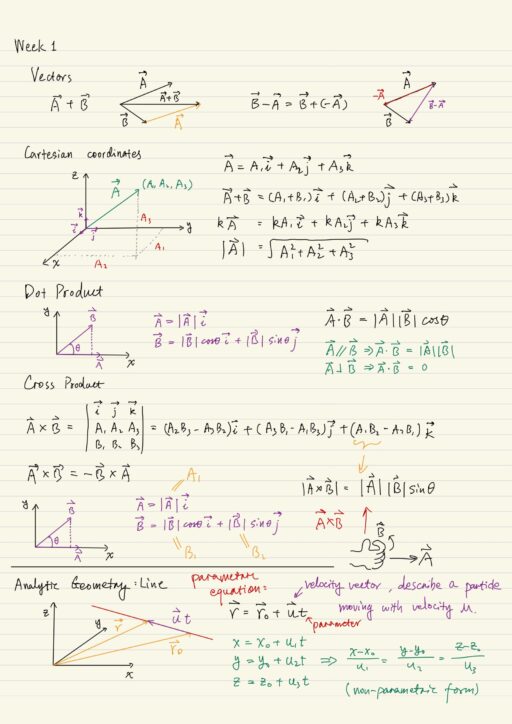 Week 1
Vectors
A⃗ + B⃗
A⃗
A⃗+B⃗
B⃗
A⃗
B⃗-A⃗ = B⃗+(-A⃗)
-A⃗
A⃗
B⃗
B⃗-A⃗
Cartesian coordinates
z
A⃗
(A₁ A₂, A₃)
k⃗
i⃗
j⃗
A₃
A₁
A₂
y
x
A⃗ = A₁i⃗ + A₂j⃗ + A₃k⃗
A⃗+B⃗ = (A₁+B₁)i⃗ + (A₂+B₂)j⃗ + (A₃+B₃)k⃗
kA⃗ = kA₁i⃗ + kA₂j⃗ + kA₃k⃗
|A⃗| = √(A₁² + A₂² + A₃²)
Dot Product
y
B⃗
θ
A⃗
x
A⃗ = |A⃗| i⃗
B⃗ = |B⃗| cosθ i⃗ + |B⃗| sinθ j⃗
A⃗·B⃗ = |A⃗||B⃗| cosθ
A⃗ // B⃗ ⇒ A⃗·B⃗ = |A⃗||B⃗|
A⃗⊥B⃗ ⇒ A⃗·B⃗ = 0
Cross Product
A⃗ × B⃗ = | i⃗ j⃗ k⃗ | = (A₂B₃ - A₃B₂)i⃗ + (A₃B₁ - A₁B₃)j⃗ + (A₁B₂ - A₂B₁)k⃗
A₁ A₂ A₃
B₁ B₂ B₃
A⃗ × B⃗ = -B⃗ × A⃗
A₁
y
B⃗
θ
A⃗
x
A⃗ = |A⃗| i⃗
B⃗ = |B⃗| cosθ i⃗ + |B⃗| sinθ j⃗
B₁
B₂
|A⃗×B⃗| = |A⃗||B⃗| sinθ
A⃗×B⃗
B⃗
A⃗
Analytic Geometry: Line
z
y
x
r⃗
u⃗t
r⃗₀
parametric
equation:
r⃗ = r⃗₀ + u⃗t
parameter
velocity vector, describe a particle
moving with velocity u.
x = x₀ + u₁t
y = y₀ + u₂t
z = z₀ + u₃t
⇒ (x-x₀)/u₁ = (y-y₀)/u₂ = (z-z₀)/u₃
(non-parametric form)